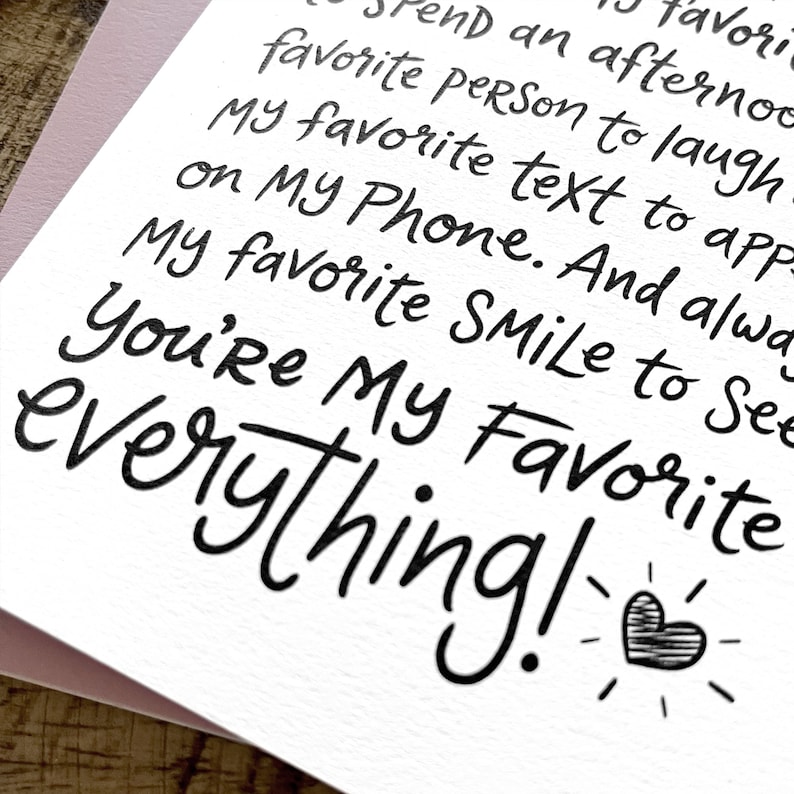 favorit
to spend an afternoo
favorite person to laugh
My favorite text to app
on my phone. And alway
My favorite smile to see
You're my favorite
everything!